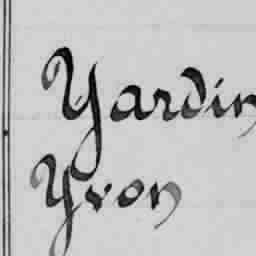 Yardin
Yvon